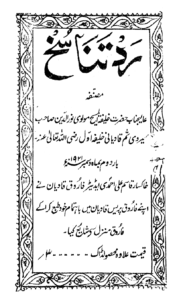 ردّ تناسخ
مصنفہ
عالیجناب حضرت خلیفۃ المسیح مولوی نورالدین صاحب
بھیروی ثم قادیانی خلیفہ اول رضی اللہ تعالیٰ عنہ
بار دوم ماہ دسمبر ۱۹۲۱ء
خاکسار قاسم علی احمدی ایڈیٹر فاروق قادیان نے
اپنے فاروق پریس قادیان میں باہتمام خود طبع کرا کے
فاروق منزل سے شائع کیا۔
قیمت علاوہ محصولڈاک ۳